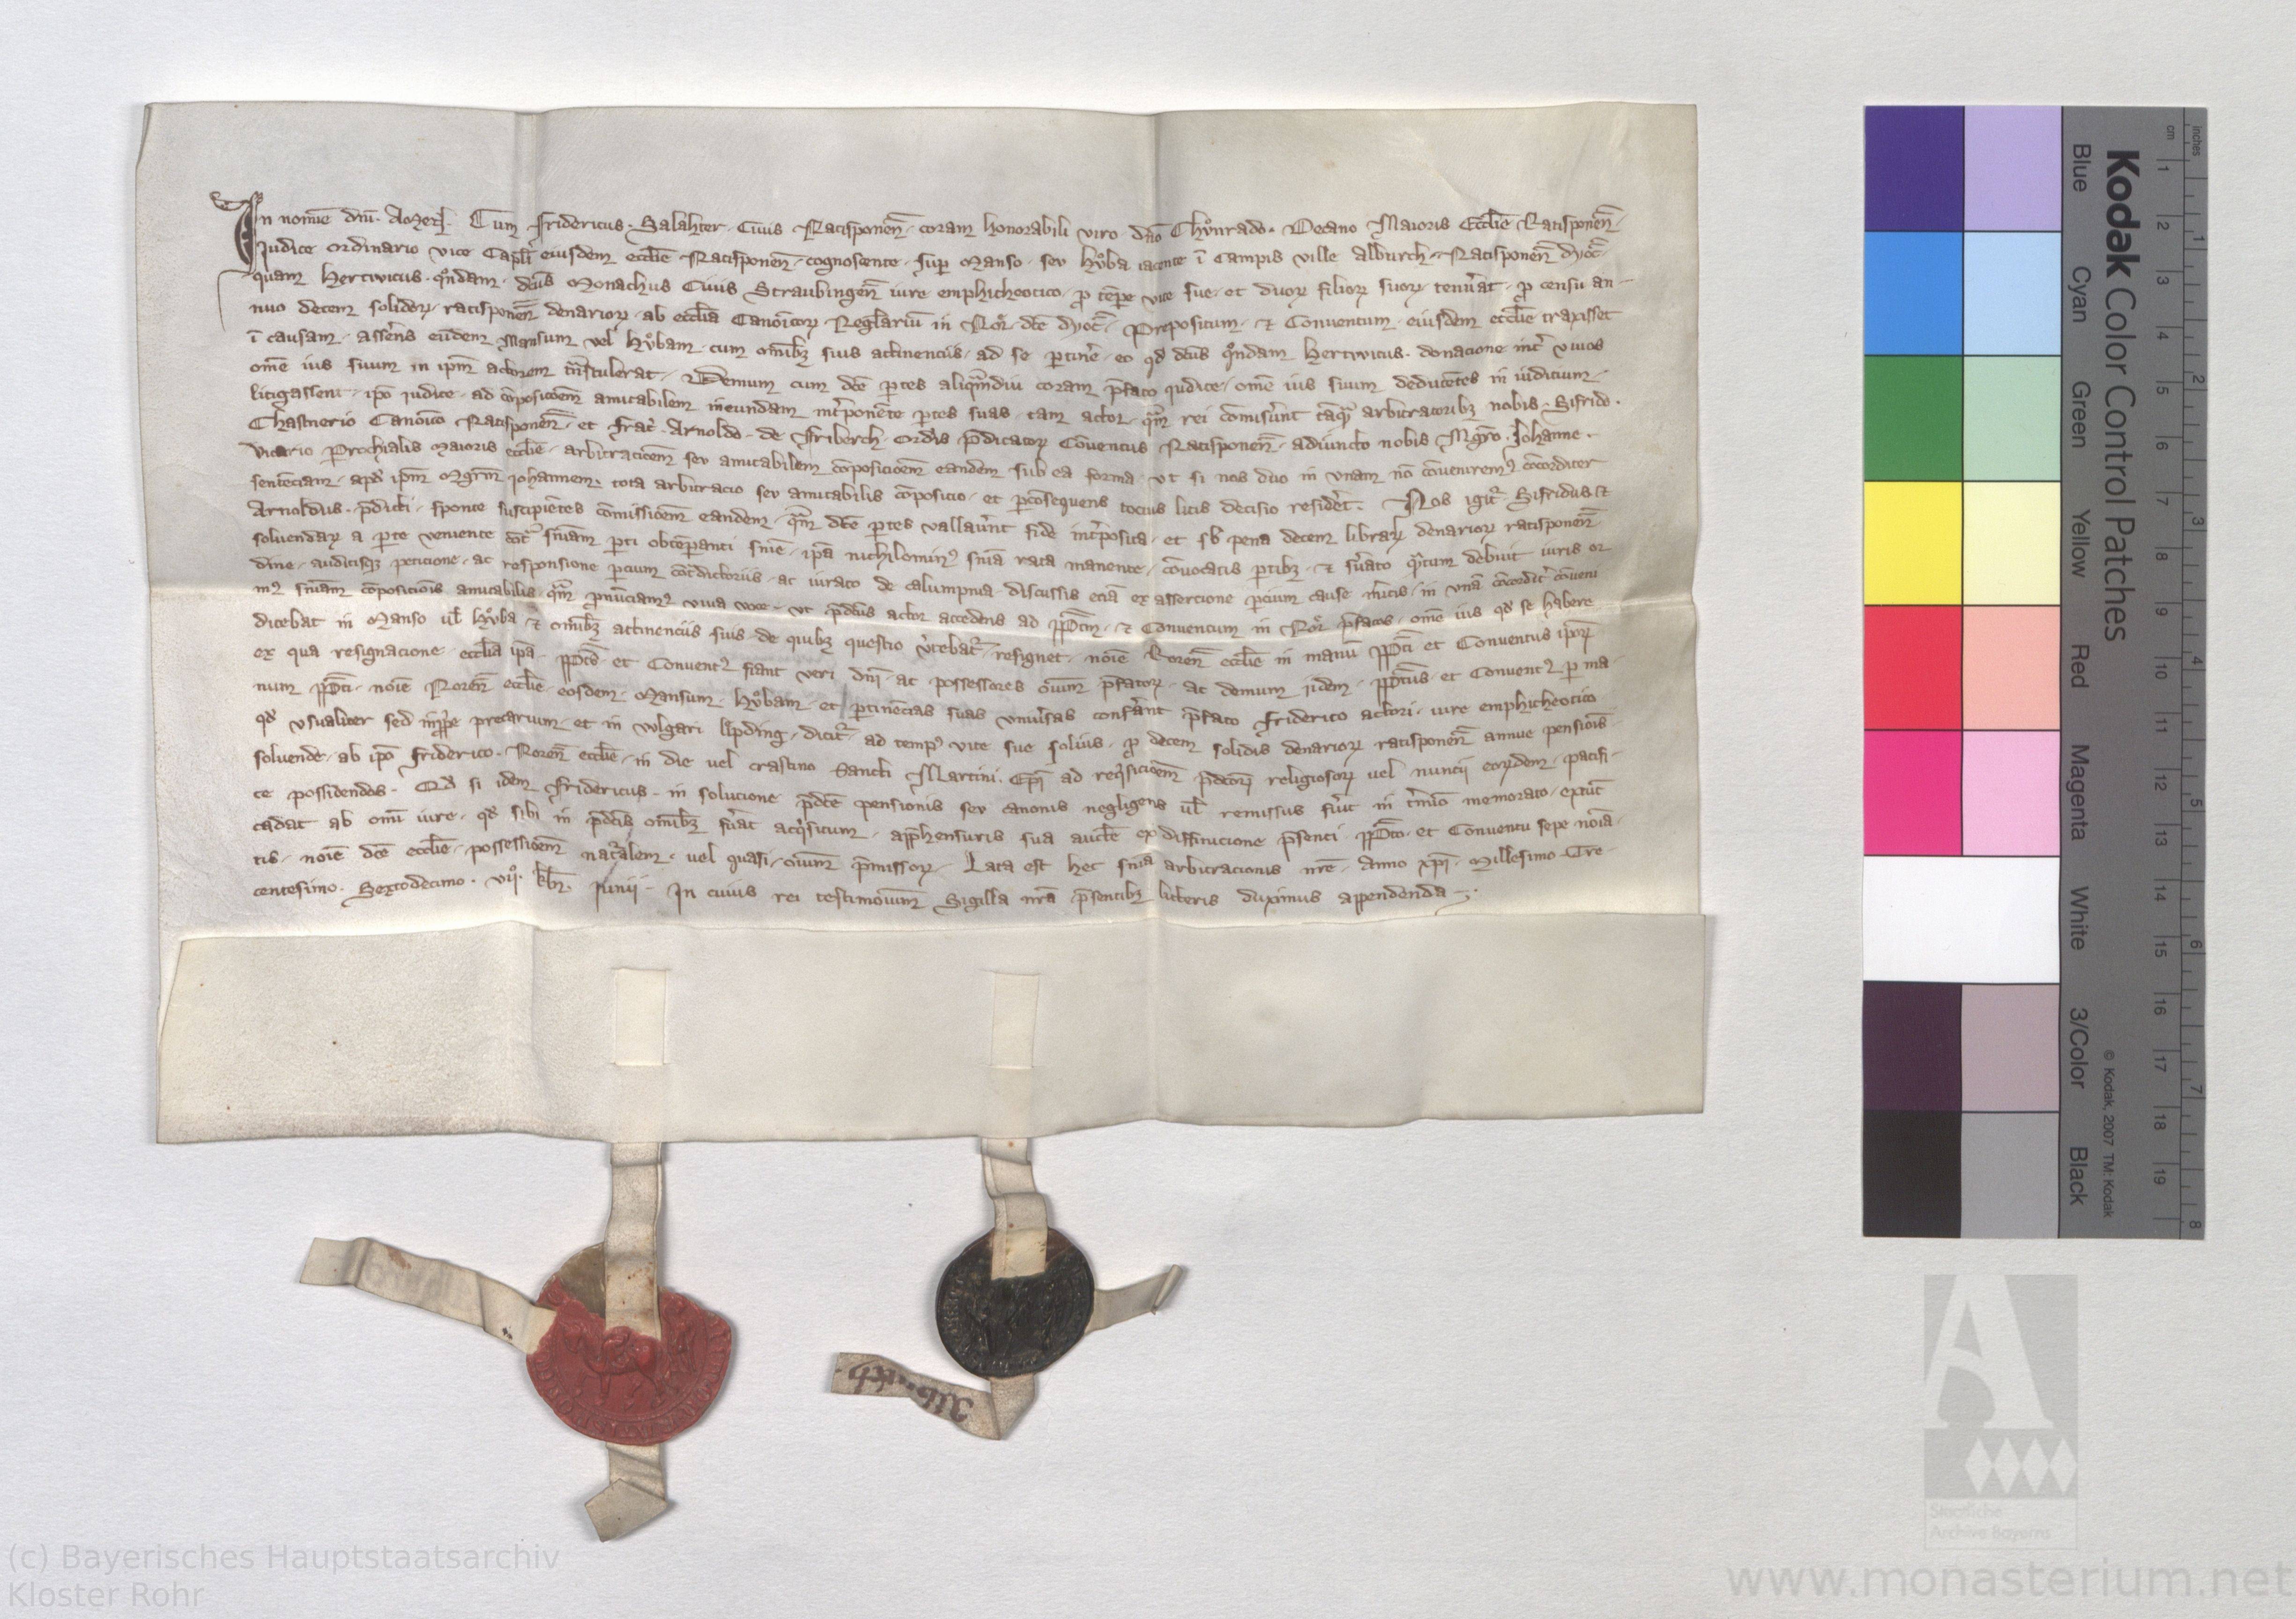 In nomīe dn̄i. Amen. Cum Fridericus. Salahter. Ciuis Ratisponen̄. coram honorabili viro. dn̄o Chůnrado. Decano Maioris Eccl̄ie Ratisponen̄.
Iudice ordinario vice Capl̄i eiusdem eccl̄ie Ratisponen̄. cognoscente. sup̄ Manso. seu hůba iacente ī Campis ville Alburch. Ratisponen̄ dyoc̄.
quam Hertwicus. qͦndam. dc̄us Monachus Ciuis Straubingen̄ iure emphitheotico. ꝓ tēpe vite sue. et duoꝝ filioꝝ suoꝝ. tenūat. ꝓ censu an-
nuo decem solidoꝝ. ratisponen̄ denarioꝝ. ab eccl̄ia Canōicoꝝ Regl̄ariū in Ror. dc̄e dyoc̄. Prepositum. et Conuentum. eiusdem eccl̄ie traxisset
ī causam. assēns eūdem Mansum vel hůbam. cum om̄ibꝫ suis attinenciis. ad se ꝑtinēe. eo qđ dc̄us qͦndam Hertwicus. donacione int̄ viuos
om̄e ius suum in ip̄m actorem tn̄stulerat. Demum cum dc̄e ꝑtes aliqᵃmdiu coram p̄fato iudice. om̄e ius suum deducētes in iudicium.
litigassent. ip̄o iudice. ad cōposicōem amicabilem ineundam int̄ponēte ꝑtes suas. tam actor. qᵃm rei cōmisūnt tāqᵃ arbitratoribꝫ nobis. Sifrido.
Chastnerio Canōico Ratisponen̄. et frat̄. Arnoldo. de Friberch. ordīs p̄dicatoꝝ Cōuentus Ratisponen̄. adiuncto nobis Mgr̄o. Iohanne.
vicario ꝑrochialis Maioris eccl̄ie. arbitracōem seu amicabilem cōposicōem eandem sub ea forma. vt si nos duo in vnam nō cōuenirem᷒ cōcorditer
sentēciam. apđ ip̄m Mgr̄m Iohannem. tota arbitracio seu amicabilis cōposicio. et ꝑcōsequens tocius litis decisio residēt. Nos igit᷑. Sifridus. et
Arnoldus. p̄dicti. sponte suscipiētes cōmissiōem eandem. qᵃm dc̄e ꝑtes vallaūnt fide int̄posita. et sb̄ pena decem libraꝝ denarioꝝ ratisponen̄
soluendaꝝ a ꝑte veniente cōt᷑ sn̄iam ꝑti obtēꝑanti sn̄ie. ip̄a nichilomin᷒ sn̄ia rata manente. cōuocatis ꝑtibꝫ. et sūato qᵃtum debuit iuris or
dine. auditisqꝫ peticione. ac responsione ꝑcium cōt᷑dictoriis. ac iurato de calumpnia. discussis eciā ex assercione ꝑcium cause m̄itis. in vnā cōcordit᷑ cōueni
m᷒ sn̄iam cōposicionis amicabilis. qᵃm ꝓnūciam᷒ viua voce. vt p̄dc̄us actor accedens ad pp̄itm̄. et Conuentum in Ror. p̄fatos. om̄e ius qđ se habere
dicebat in Manso ul̄ hůba et om̄ibꝫ attinenciis suis de quibꝫ questio v̄tebat᷑. resignet. noīe Roren̄ eccl̄ie in manū pp̄iti et Conuentus ip̄oꝝ
ex qua resignacione. eccl̄ia ip̄a. pp̄its et Conuent᷒ fiant veri dn̄i. ac possessores oīum p̄fatoꝝ. ac demum iidem. pp̄itus et Conuent᷒ ꝑ ma-
num pp̄iti. noīe Roren̄ eccl̄ie. eosdem. Mansum. hůbam. et ꝑtinēcias suas vniūsas confānt p̄fato Friderico actori. iure emphitheotico
qđ vsualiter sed inpp̄e precarium. et in vlgari lipding. dicit᷑. ad temp᷒ vite sue solius. ꝓ decem solidis denarioꝝ ratisponen̄ annue pensiōis
soluende. ab ip̄o Friderico. Roren̄ eccl̄ie. in die uel crastino Sancti Martini. Ep̄i ad reqͥsicōem p̄dc̄oꝝ religiosoꝝ uel nuncii eorūdem. pacifi-
ce possidendos. Qđ si idem Fridericus. in solucione p̄dc̄e pensionis seu canonis negligens ul̄ remissus fūit in t̄mīo memorato. extūc
cadat ab om̄i iure. qđ sibi in p̄dc̄is om̄ibꝫ fūat acqͥsitum. app̄hensuris sua auct̄e ex diffinicione p̄senti. pp̄ito. et Conuentu sepe noīa-
tis. noīe dc̄e eccl̄ie. possessiōem nat᷑alem. uel quasi. oīum p̄missoꝝ. Lata est hec sn̄ia arbitracionis nr̄e. Anno xp̄i. Millesimo. Tre-
centesimo. Sextodecimo. viiͦ. kl̄n. Iunii. In cuius rei testimonium Sigilla nr̄a p̄sentibꝫ litteris duximus appendenda.
Alburch
Kodak Color Control Patches
Blue Cyan Green Yellow Red Magenta White 3/Color Black
© Kodak, 2007 TM: Kodak
inches
1 2 3 4 5 6 7 8
cm
1 2 3 4 5 6 7 8 9 10 11 12 13 14 15 16 17 18 19
Staatliche
Archive Bayerns
(c) Bayerisches Hauptstaatsarchiv
Kloster Rohr
www.monasterium.net